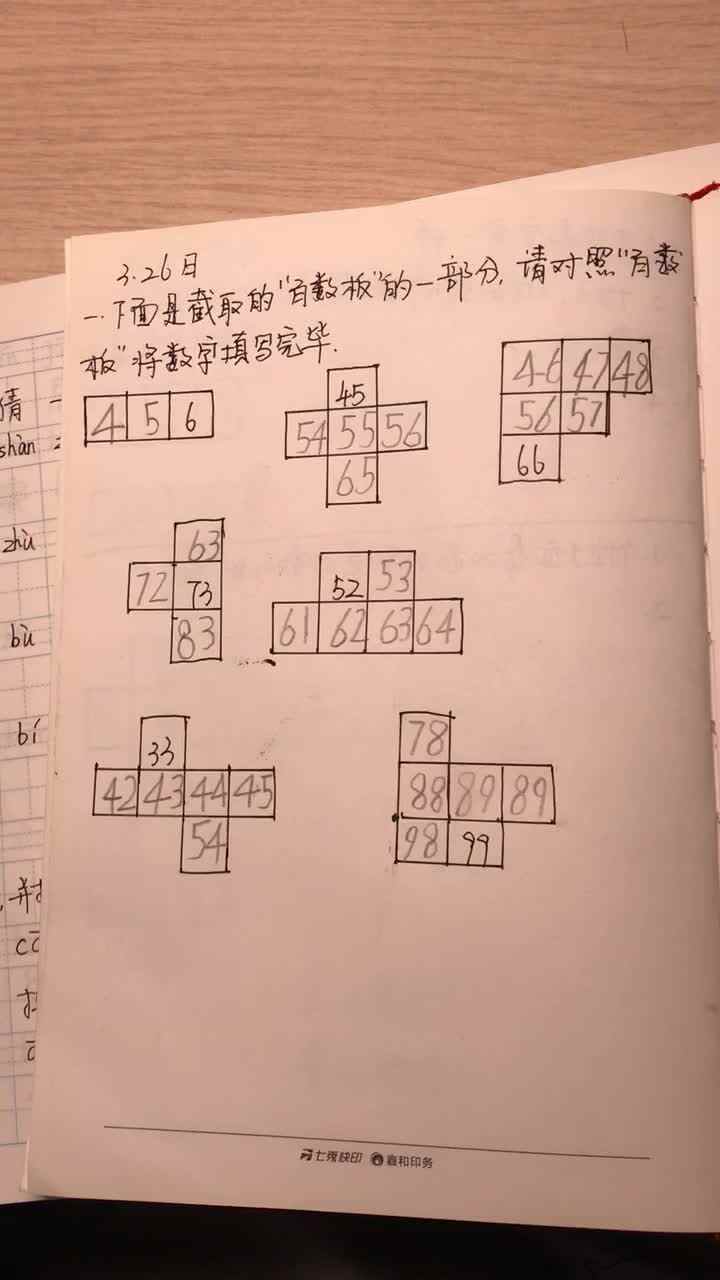 3.26日
一.下面是截取的"百数板"的一部分,请对照"百数
板"将数字填写完毕.
4 5 6
45
54 55 56
65
46 47 48
56 57
66
63
72 73
83
52 53
61 62 63 64
33
42 43 44 45
54
78
88 89 89
98 99
倩 一
shàn
zhù
bù
bí
七彩快印 嘉和印务